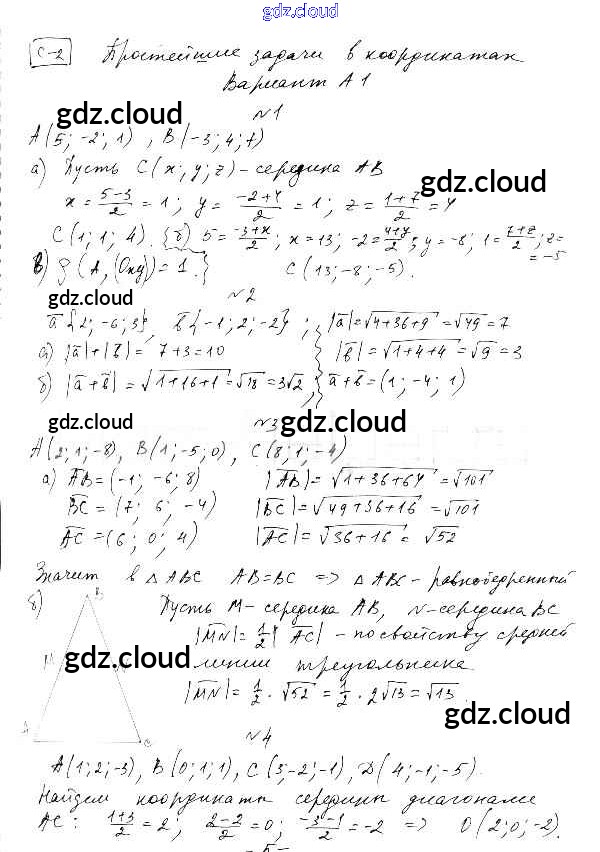 gdz.cloud
С-2 Простейшие задачи в координатах
Вариант А1
№1
gdz.cloud gdz.cloud
A(5; -2; 1), B(-3; 4; 7)
а) Пусть C(x; y; z) - середина AB
x = \frac{5-3}{2} = 1; y = \frac{-2+4}{2} = 1; z = \frac{1+7}{2} = 4
gdz.cloud
C(1; 1; 4). {б) 5 = \frac{-3+x}{2}; x = 13; -2 = \frac{4+y}{2}; y = -8; 1 = \frac{7+z}{2}; z =
= -5
в) ρ(A, (Oxy)) = 1.} C(13; -8; -5).
gdz.cloud №2
gdz.cloud
a̅{2; -6; 3}, b̅{-1; 2; -2}; |a̅| = √4+36+9 = √49 = 7
а) |a̅|+|b̅| = 7+3 = 10 |b̅| = √1+4+4 = √9 = 3
б) |a̅+b̅| = √1+16+1 = √18 = 3√2, a̅+b̅ = (1; -4; 1)
gdz.cloud №3 gdz.cloud
A(2; 1; -8), B(1; -5; 0), C(8; 1; -4)
а) A̅B̅ = (-1; -6; 8) |A̅B̅| = √1+36+64 = √101
B̅C̅ = (7; 6; -4) |B̅C̅| = √49+36+16 = √101
gdz.cloud gdz.cloud
A̅C̅ = (6; 0; 4) |A̅C̅| = √36+16 = √52
Значит в △ABC AB=BC => △ABC - равнобедренный
б) B Пусть M - середина AB, N - середина BC
|M̅N̅| = \frac{1}{2}|A̅C̅| - по свойству средней
M gdz.cloud линии треугольника
|M̅N̅| = \frac{1}{2} · √52 = \frac{1}{2} · 2√13 = √13.
gdz.cloud
A C №4
A(1; 2; -3), B(0; 1; 1), C(3; -2; -1), D(4; -1; -5).
gdz.cloud
Найдем координаты середины диагонали
gdz.cloud
AC: \frac{1+3}{2} = 2; \frac{2-2}{2} = 0; \frac{-3-1}{2} = -2 => O(2; 0; -2).